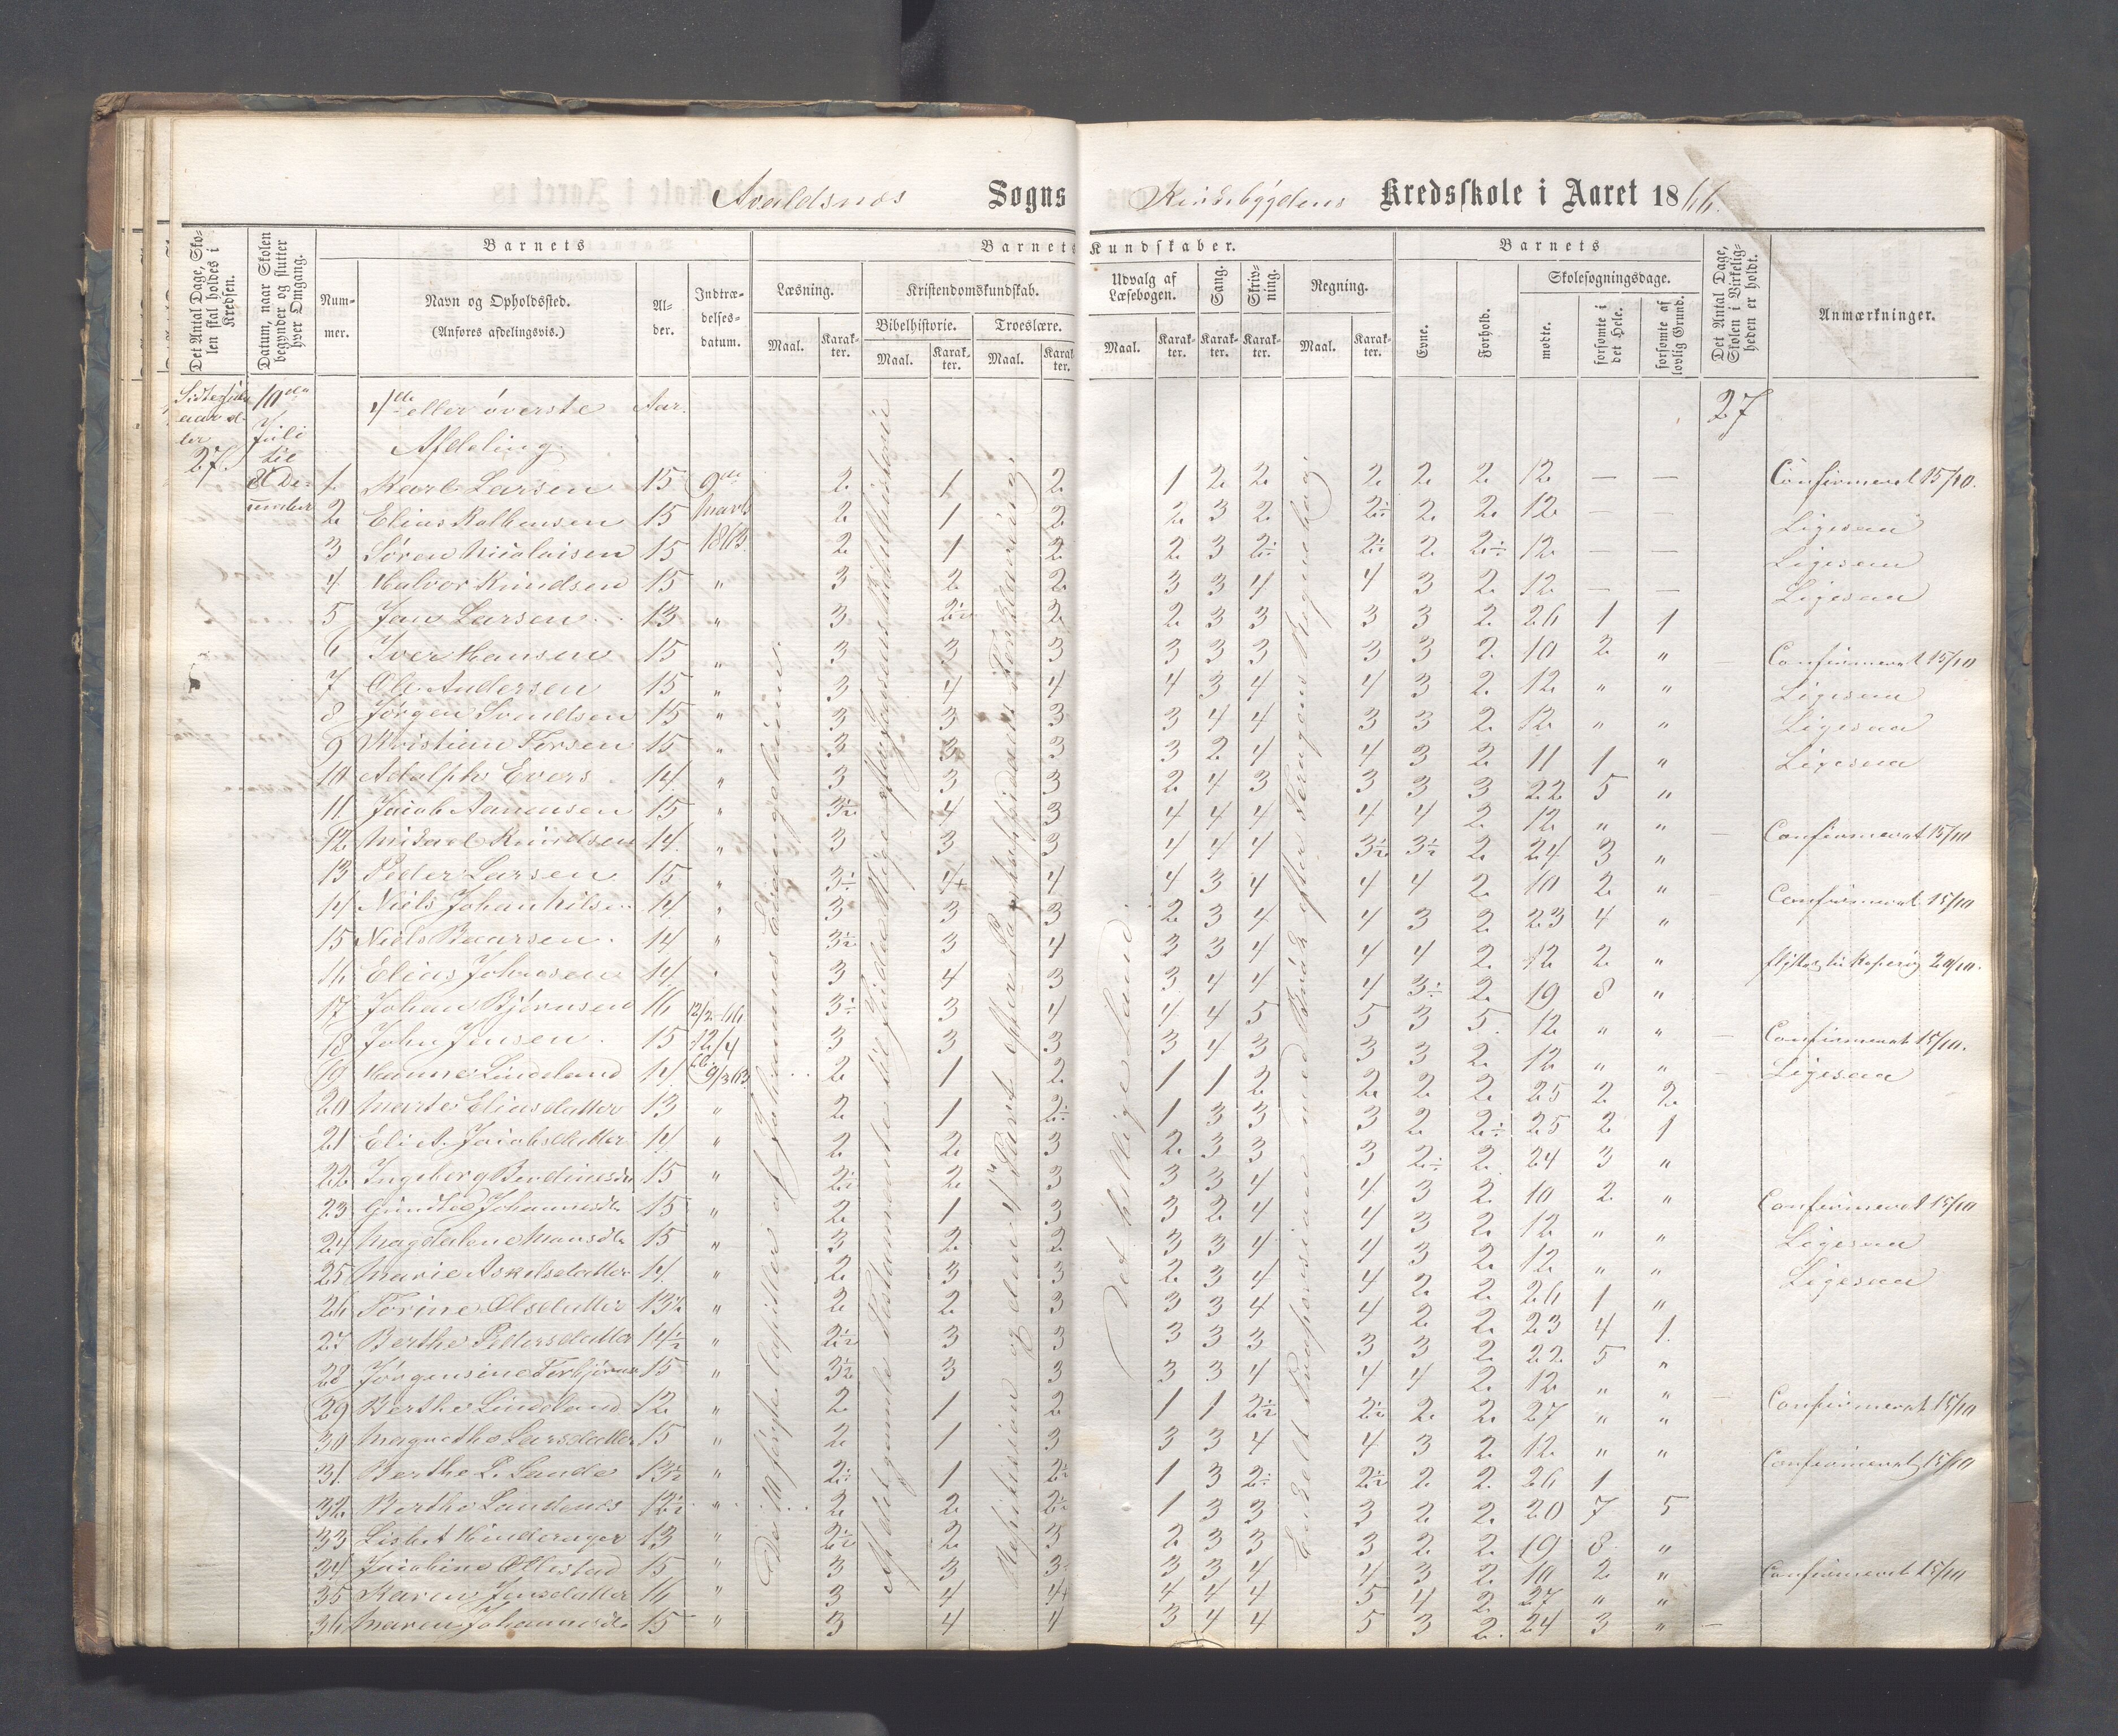 Avaldsnes Sogns Kredsskole i Aaret 1866.
Det Antal Dage, Skolen skal holdes i Kredsen.
Datum, naar Skolen begynder og slutter hver Omgang.
Barnets
Barnets Kundskaber.
Barnets
Det Antal Dage, Skolen i Virkeligheden er holdt.
Anmærkninger.
Nummer.
Navn og Opholdssted.
(Anføres afdelingsvis.)
Alder.
Indtrædelsesdatum.
Læsning.
Kristendomskundskab.
Bibelhistorie.
Troeslære.
Udvalg af Læsebogen.
Sang.
Skrivning.
Regning.
Evne.
Forhold.
Skolesøgningsdage.
Maal. Karakter. Maal. Karakter. Maal. Karakter. Maal. Karakter. Karakter. Karakter. Maal. Karakter.
mødte. forsømte i det Hele. forsømte af lovlig Grund.
27. 10de Juli til
1de eller överste Aar. 27
Afdeling
1 Karl Larsen 15 9de 2 1 2 1 2 2 2 2 2 12 — — Confirmeret 15/10.
2 Elias 15 Marts 2 1 2 2 3 2 2½ 2 2 12 — — Ligesaa
3 Sören Nicolaisen 15 1863 2 1 2 2 3 2÷ 2½ 2 2÷ 12 — — Ligesaa
4 Halvor Knudsen 15 " 3 2 2 3 3 4 4 3 2 12 — — Ligesaa
5 Jan Larsen 13 " 3 2½ 2 2 3 3 3 3 2 26 1 1
6 Iver Hansen 15 " 3 3 3 3 3 3 3 3 2 10 2 " Confirmeret 15/10
7 Ole Andersen 15 " 3 4 4 4 3 4 4 3 2 12 " " Ligesaa
8 Jörgen Svendsen 15 " 3 3 3 3 4 4 3 3 2 12 " " Ligesaa
9 Kristian 15 " 3 3 3 3 2 4 4 3 2 11 1 " Ligesaa
10 Adolph Evers 14 " 3 3 3 2 4 3 3 3 3 22 5 "
11 Jacob Aanensen 15 " 3½ 4 3 4 4 4 4 4 2 12 " " Confirmeret 15/10
12 Mikael Knudsen 14 " 3 3 3 4 4 4 3½ 3½ 2 24 3 "
13 Peder Larsen 15 " 3÷ 4+ 4 4 3 4 4 4 2 10 2 " Confirmeret 15/10
14 Niels Johan Nilsen 14 " 3 3 3 2 3 4 4 3 2 23 4 "
15 Niels Baarsen 14 " 3½ 3 4 3 3 4 4 4 2 12 2 " 20/10.
16 Elias Johnsen 14 " 3 4 3 3 4 4 4 3÷ 2 19 8 "
17 Johan Björnsen 16 12/2-66 3÷ 3 4 4 4 5 5 3 5 12 " " Confirmeret 15/10.
18 John Jensen 15 12/4 66 3 3 3 3 4 3 3 3 2 12 " " Ligesaa
19 Hanne Lindeland 14 9/3 63 2 1 2 1 1 2 2 2 2 25 2 2
20 Marte Eliasdatter 13 " 2 1 2÷ 1 3 3 3 2 2÷ 25 2 1
21 Jacobsdatter 14 " 2 2 3 2 3 3 3 2÷ 2 24 3 "
22 Ingeborg 15 " 2÷ 2 3 3 3 4 4 3 2 10 2 " Confirmeret 15/10
23 Johannesdtr 15 " 2 1 3 3 2 4 4 3 2 12 " " Ligesaa
24 Magdalene Monsdtr 15 " 3 2 2 3 3 4 4 3 2 12 " " Ligesaa
25 Marie Askelsdatter 14 " 2 3 3 2 3 4 4 2 2 26 1 "
26 Torine Olsdatter 13½ " 2 2 3 3 3 4 4 2 2 23 4 1
27 Berthe Pedersdatter 14½ " 2½ 3 3 3 3 3 3 3 2 22 5 "
28 Jörgensine 15 " 3½ 3 3 3 3 4 4 4 2 12 " " Confirmeret 15/10
29 Berthe Lindeland 12 " 2 1 2 1 1 2½ 2½ 2 2 27 " "
30 Magnethe Larsdatter 15 " 2 1 3 3 3 4 4 3 2 12 " " Confirmeret 15/10
31 Berthe L. Lande 13½ " 2÷ 1 2½ 1 3 2÷ 2½ 2 2 26 1
32 Berthe 12½ " 2 2 2½ 1 3 3 3 2 2 20 7 5
33 Lisbet Hinderager 13 " 2½ 2 3 2 3 3 3 2 2 19 8 "
34 Jacobine 15 " 3 3 3 3 3 4 4 3 2 10 2 " Confirmeret 15/10
35 Karen Jensdatter 16 " 3 4 4+ 4 4 4 5 4 2 27 " "
36 Maren Johannesdtr 15 " 3 4 4 3 4 4 5 3 2 24 3 "
De 10 første Capitler af Johannes Evangelium.
Det hellige Land.